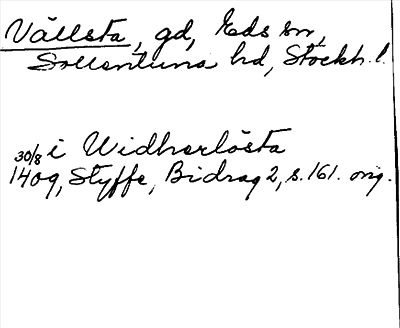 Vällsta, gd, Eds sn,
Sollentuna hd, Stockh. l.
30/8 i Widherlösta
1409, Styffe, Bidrag 2, s. 161. orig.